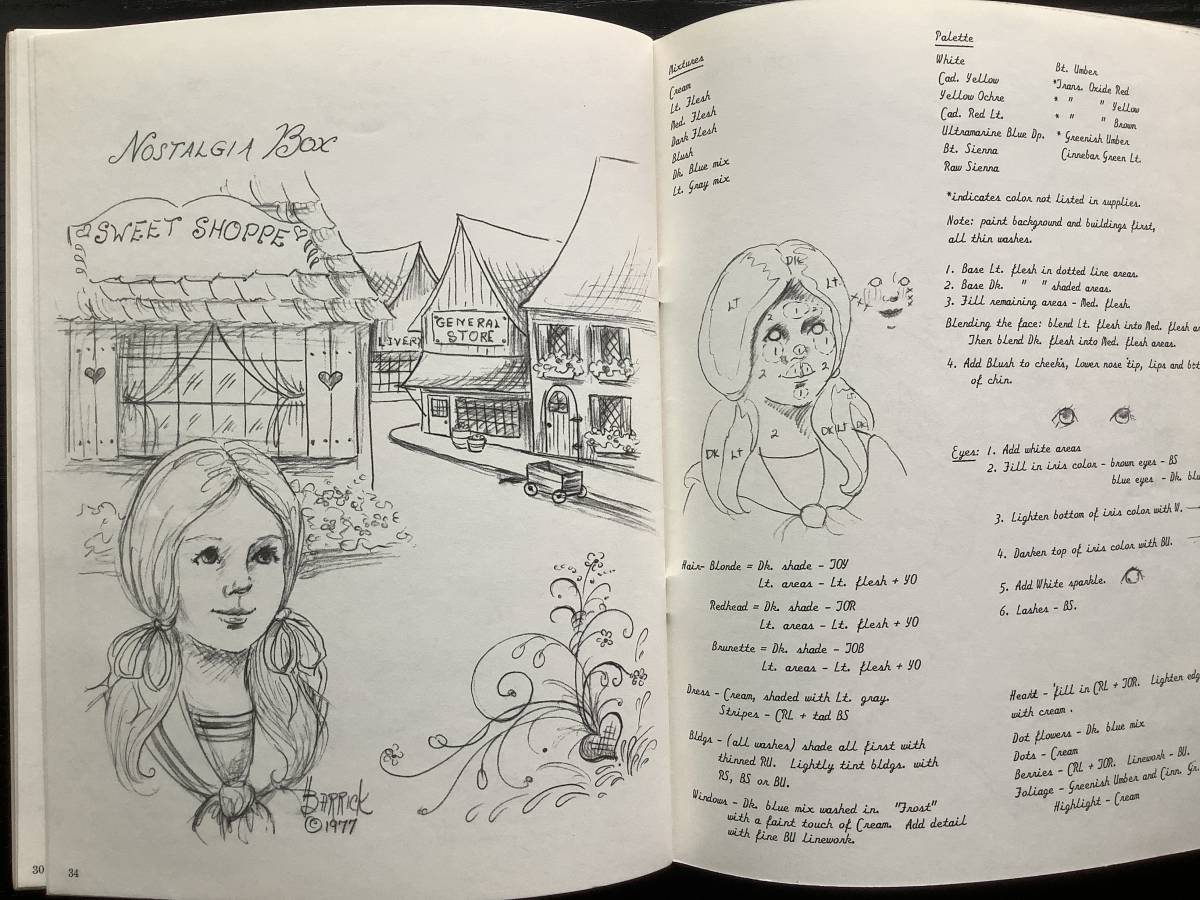 NOSTALGIA BOX
SWEET SHOPPE
LIVERY
GENERAL
STORE
BARRICK
©1977
30
34
Mixtures
Cream
Lt. Flesh
Med. Flesh
Dark Flesh
Blush
Dk. Blue mix
Lt. Gray mix
Palette
White
Cad. Yellow
Yellow Ochre
Cad. Red Lt.
Ultramarine Blue Dp.
Bt. Sienna
Raw Sienna
Bt. Umber
*Trans. Oxide Red
* " " Yellow
* " " Brown
* Greenish Umber
Cinnebar Green Lt.
*indicates color not listed in supplies.
Note: paint background and buildings first,
all thin washes.
1. Base Lt. flesh in dotted line areas.
2. Base Dk. " " shaded areas.
3. Fill remaining areas - Med. flesh.
Blending the face: blend Lt. flesh into Med. flesh
Then blend Dk. flesh into Med. flesh areas.
4. Add Blush to cheeks, Lower nose tip, Lips and
of chin.
DK
LT
LT.
2
1
2
1
1
2
2
1
2
DK
LT
DK
LT
DK
Eyes: 1. Add white areas
2. Fill in iris color - brown eyes - BS
blue eyes - Dk.
3. Lighten bottom of iris color with W.
4. Darken top of iris color with BU.
5. Add White sparkle.
6. Lashes - BS.
Hair- Blonde = Dk. shade - TOY
Lt. areas - Lt. flesh + YO
Redhead = Dk. shade - TOR
Lt. areas - Lt. flesh + YO
Brunette = Dk. shade - TOB
Lt. areas - Lt. flesh + YO
Dress - Cream, shaded with Lt. gray.
Stripes - CRL + tad BS
Bldgs - (all washes) shade all first with
thinned RU. Lightly tint bldgs. with
RS, BS or BU.
Windows - Dk. blue mix washed in. "Frost"
with a faint touch of Cream. Add detail
with fine BU linework.
Heart - fill in CRL + TOR. Lighten
with cream.
Dot flowers - Dk. blue mix
Dots - Cream
Berries - CRL + TOR. Linework - BU.
Foliage - Greenish Umber and Cinn. Gr.
Highlight - Cream